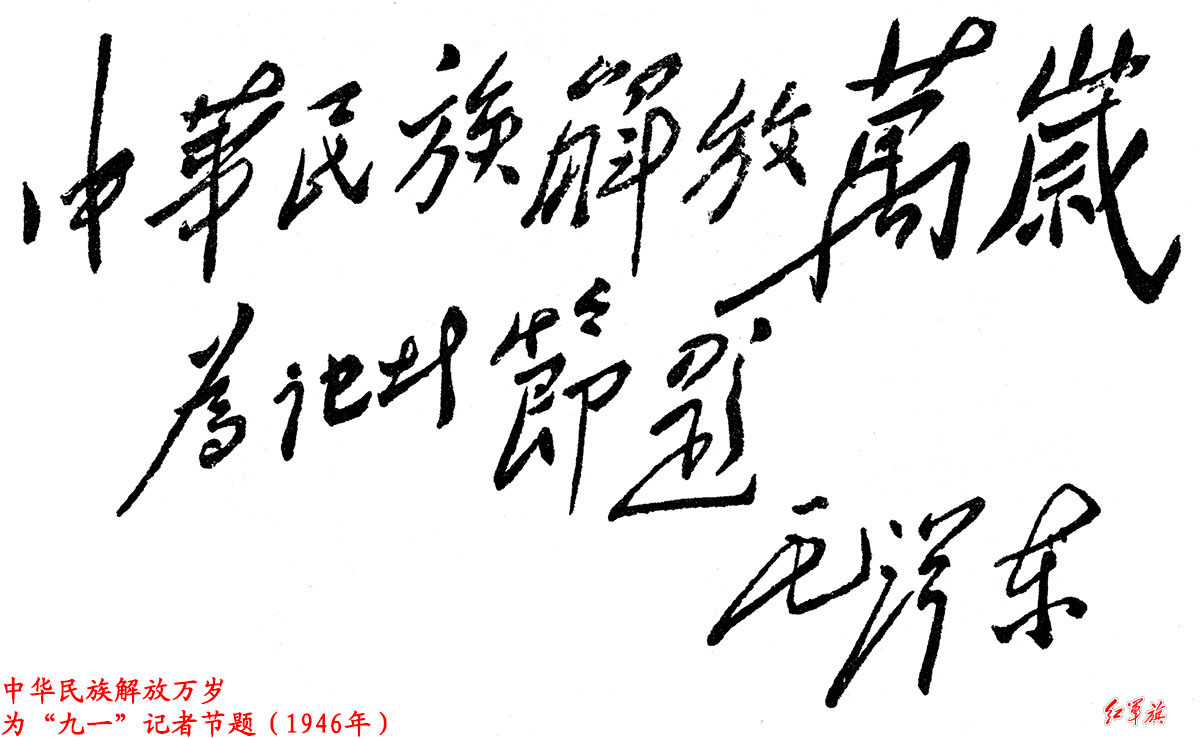 中華民族解放萬歲
為记者節題
毛泽东
中华民族解放万岁
为“九一”记者节题（1946年）
红军旗